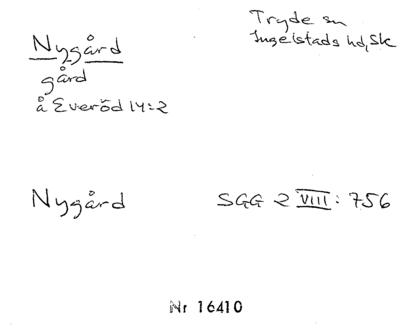 Nygård
gård
å Everöd 14:2
Tryde sn
Ingelstads hd, Sk
Nygård
SGG 2 VIII: 756
Nr 16410